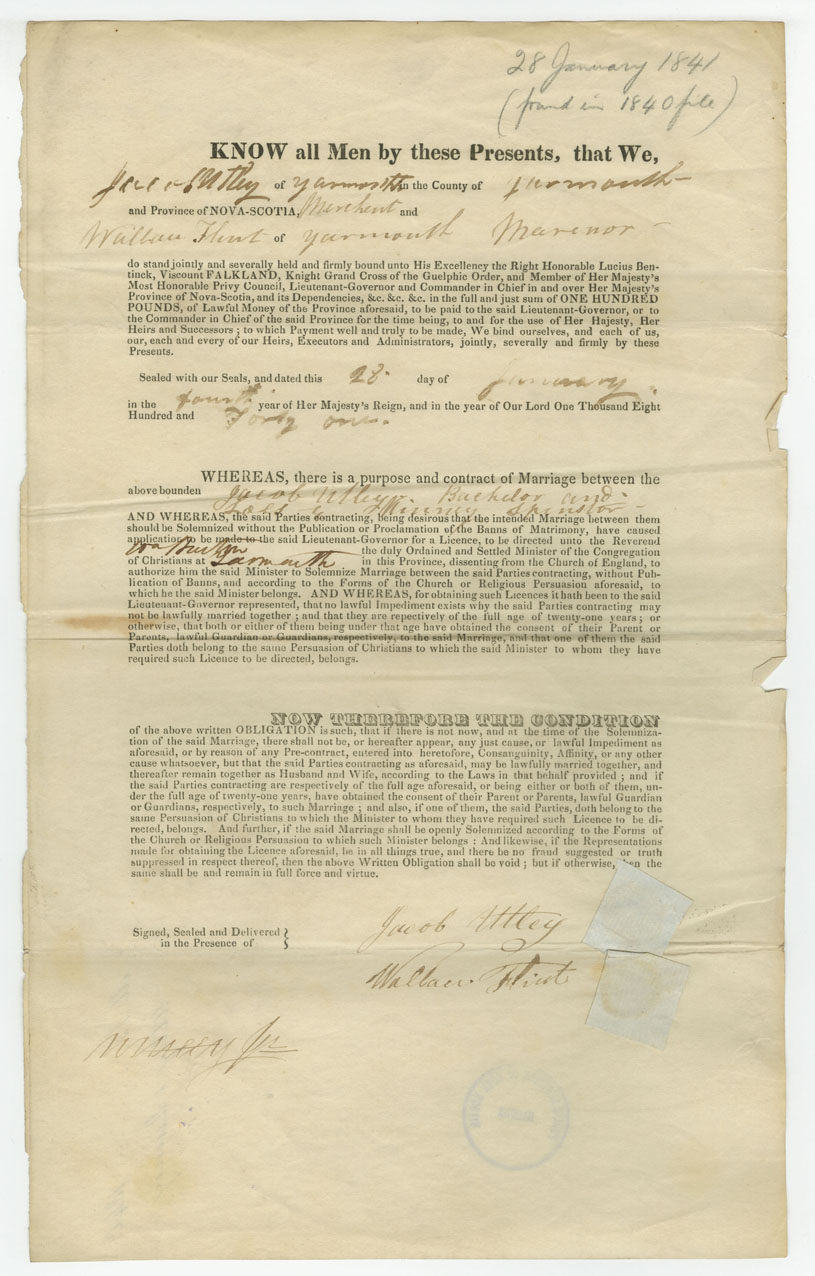 28 January 1841
(found in 1840 file)
KNOW all Men by these Presents, that We,
Jacob Utley of Yarmouth in the County of Yarmouth
and Province of NOVA-SCOTIA, Merchent and
Wallace Flint of Yarmouth Marenor
do stand jointly and severally held and firmly bound unto His Excellency the Right Honorable Lucius Ben-
tinck, Viscount FALKLAND, Knight Grand Cross of the Guelphic Order, and Member of Her Majesty's
Most Honorable Privy Council, Lieutenant-Governor and Commander in Chief in and over Her Majesty's
Province of Nova-Scotia, and its Dependencies, &c. &c. &c. in the full and just sum of ONE HUNDRED
POUNDS, of Lawful Money of the Province aforesaid, to be paid to the said Lieutenant-Governor, or to
the Commander in Chief of the said Province for the time being, to and for the use of Her Hajesty, Her
Heirs and Successors ; to which Payment well and truly to be made, We bind ourselves, and each of us,
our, each and every of our Heirs, Executors and Administrators, jointly, severally and firmly by these
Presents.
Sealed with our Seals, and dated this 28 day of January
in the fourth year of Her Majesty's Reign, and in the year of Our Lord One Thousand Eight
Hundred and Forty one.
WHEREAS, there is a purpose and contract of Marriage between the
above bounden Jacob Utley Bachelor and
Spinstor
AND WHEREAS, the said Parties contracting, being desirous that the intended Marriage between them
should be Solemnized without the Publication or Proclamation of the Banns of Matrimony, have caused
application to be made to the said Lieutenant-Governor for a Licence, to be directed unto the Reverend
Wm Burton the duly Ordained and Settled Minister of the Congregation
of Christians at Yarmouth in this Province, dissenting from the Church of England, to
authorize him the said Minister to Solemnize Marriage between the said Parties contracting, without Pub-
lication of Banns, and according to the Forms of the Church or Religious Persuasion aforesaid, to
which he the said Minister belongs. AND WHEREAS, for obtaining such Licences it hath been to the said
Lieutenant-Governor represented, that no lawful Impediment exists why the said Parties contracting may
not be lawfully married together ; and that they are repectively of the full age of twenty-one years ; or
otherwise, that both or either of them being under that age have obtained the consent of their Parent or
Parents, lawful Guardian or Guardians, respectively, to the said Marriage, and that one of them the said
Parties doth belong to the same Persuasion of Christians to which the said Minister to whom they have
required such Licence to be directed, belongs.
NOW THEREFORE THE CONDITION
of the above written OBLIGATION is such, that if there is not now, and at the time of the Solemniza-
tion of the said Marriage, there shall not be, or hereafter appear, any just cause, or lawful Impediment as
aforesaid, or by reason of any Pre-contract, entered into heretofore, Consanguinity, Affinity, or any other
cause whatsoever, but that the said Parties contracting as aforesaid, may be lawfully married together, and
thereafter remain together as Husband and Wife, according to the Laws in that behalf provided ; and if
the said Parties contracting are respectively of the full age aforesaid, or being either or both of them, un-
der the full age of twenty-one years, have obtained the consent of their Parent or Parents, lawful Guardian
or Guardians, respectively, to such Marriage ; and also, if one of them, the said Parties, doth belong to the
same Persuasion of Christians to which the Minister to whom they have required such Licence to be di-
rected, belongs. And further, if the said Marriage shall be openly Solemnized according to the Forms of
the Church or Religious Persuasion to which such Minister belongs : And likewise, if the Representations
made for obtaining the Licence aforesaid, be in all things true, and there be no fraud suggested or truth
suppressed in respect thereof, then the above Written Obligation shall be void ; but if otherwise, then the
same shall be and remain in full force and virtue.
Signed, Sealed and Delivered
in the Presence of
Jacob Utley
Wallace Flint